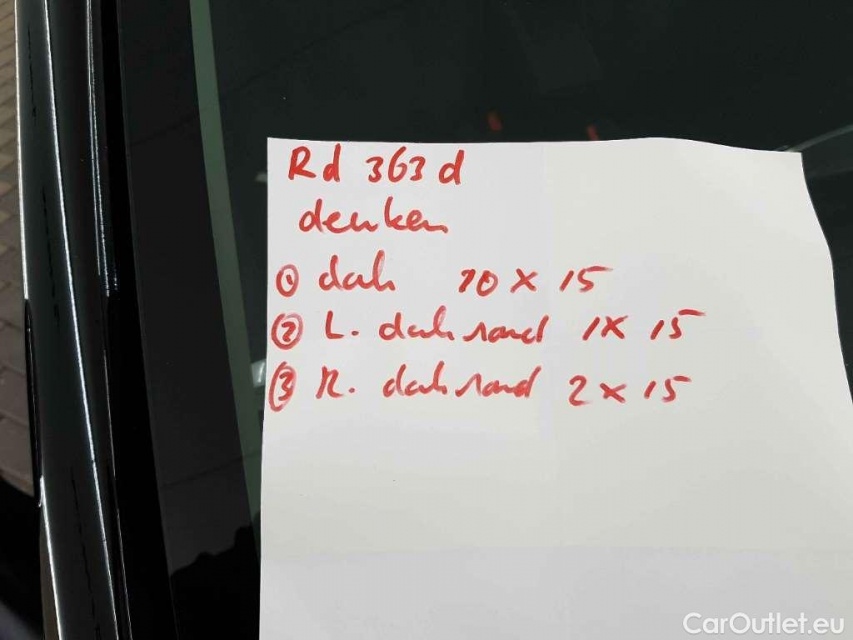 Rd 363 d
deuken
① dak 10 x 15
② L. dakrand 1x 15
③ R. dakrand 2 x 15
CarOutlet.eu